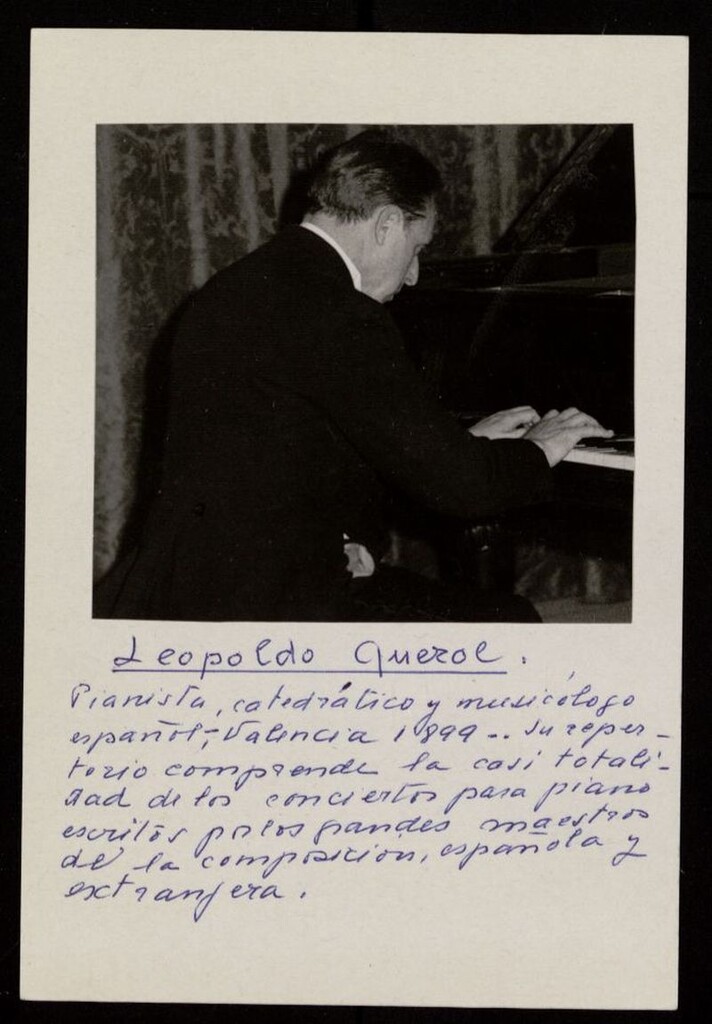 Leopoldo Querol.
Pianista, catedrático y musicólogo
español; Valencia 1899 -. Su reper-
torio comprende la casi totali-
dad de los conciertos para piano
escritos por los grandes maestros
de la composición, española y
extranjera.